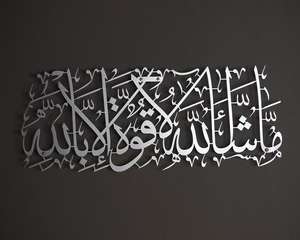 مَا شَاءَ اللَّهُ لَا قُوَّةَ إِلَّا بِاللَّهِ